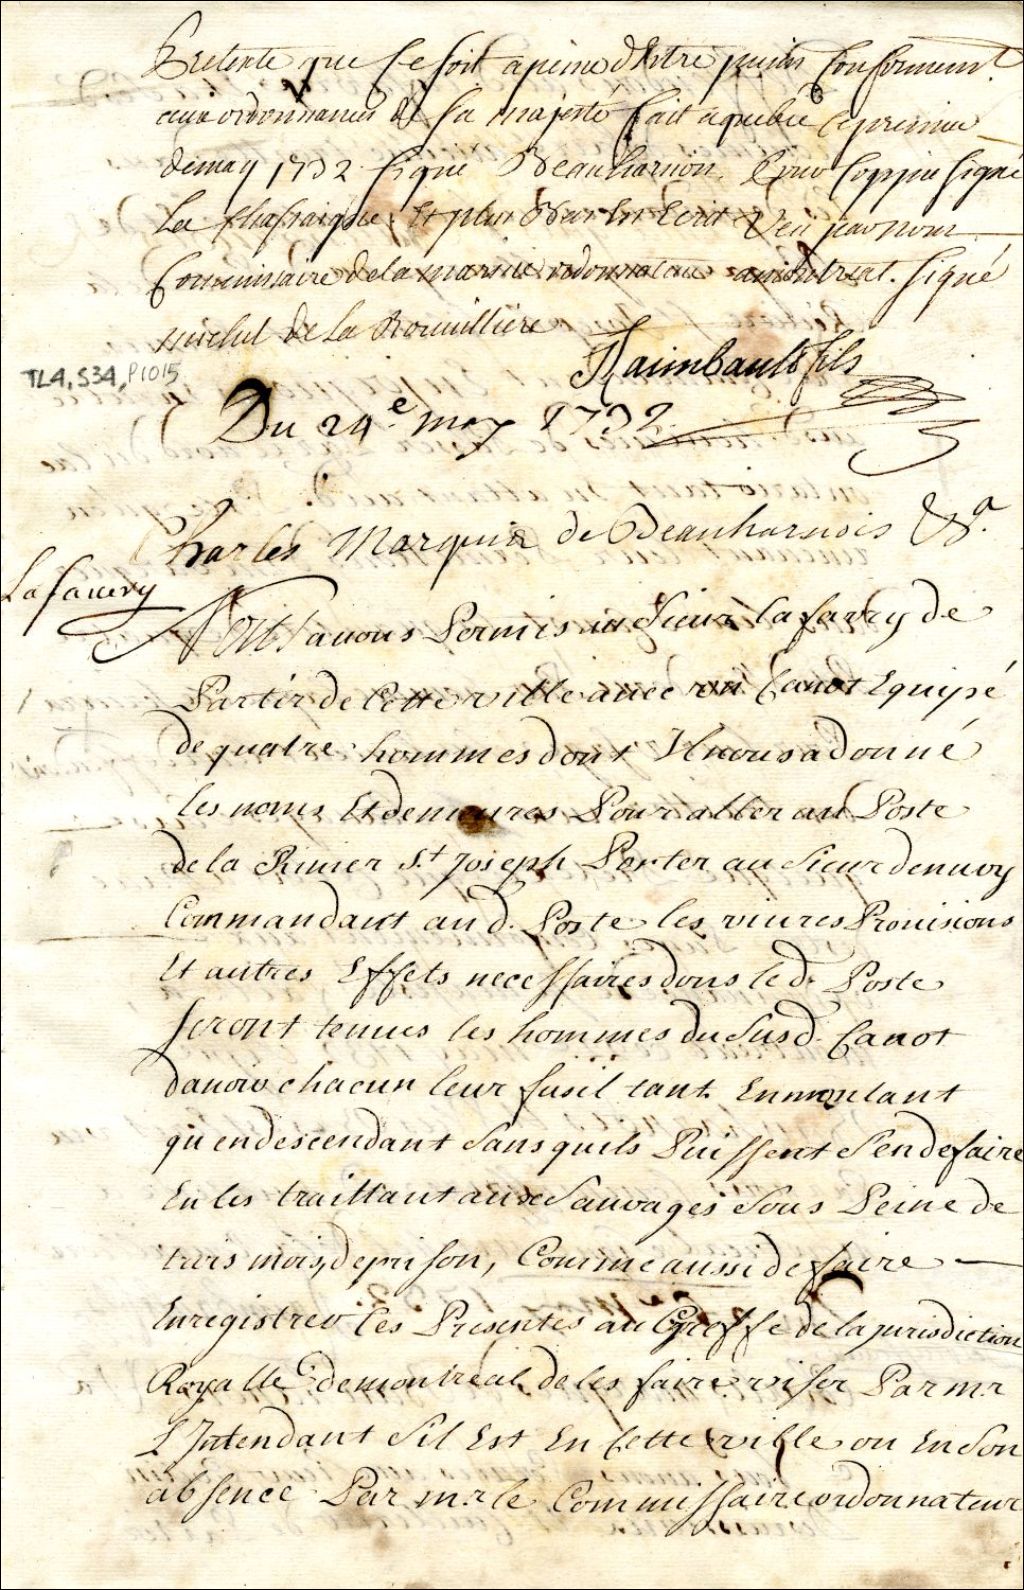 Pretexte que ce soit apeine d'Estre punis Conformemt.
aux ordonnances de sa majesté fait a quebec le premier
de may 1732 signé Beauharnois. Pour Coppie signé
La Chassaigne Et plus bas Est Ecrit Veu par nous
Commissaire dela marine ordonnateur a montreal. signé
michel de la Rouvilliere
Raimbault fils
TL4, S34, P1015
Du 24e. may 1732
Charles Marquis de Beauharnois &a.
Lafavery
Nous avons Permis au Sieur lafavry de
Partir de Cette ville avec un Canot Equipé
de quatre hommes dont Il nous a donné
les noms Et demeures Pour aller au Poste
de la Rivier St. Joseph Porter au Sieur denuoy
Commandant aud. Poste les vivres Provisions
Et autres Effets necessaires dans led. Poste
seront tenues les hommes du susd. Canot
davoir chacun leur fusil tant En montant
qu'en descendant sans quils Puissent s'en defaire
En les traittant aux Sauvages sous Peine de
trois mois, de prison, Comme aussi de faire
Enregistrer Ces Presentes au Greffe de la jurisdiction
Royalle de montreal, de les faire viser Par mr
L'Intendant s'il Est En Cette ville ou En Son
absence Par mr. le Commissaire ordonnateur